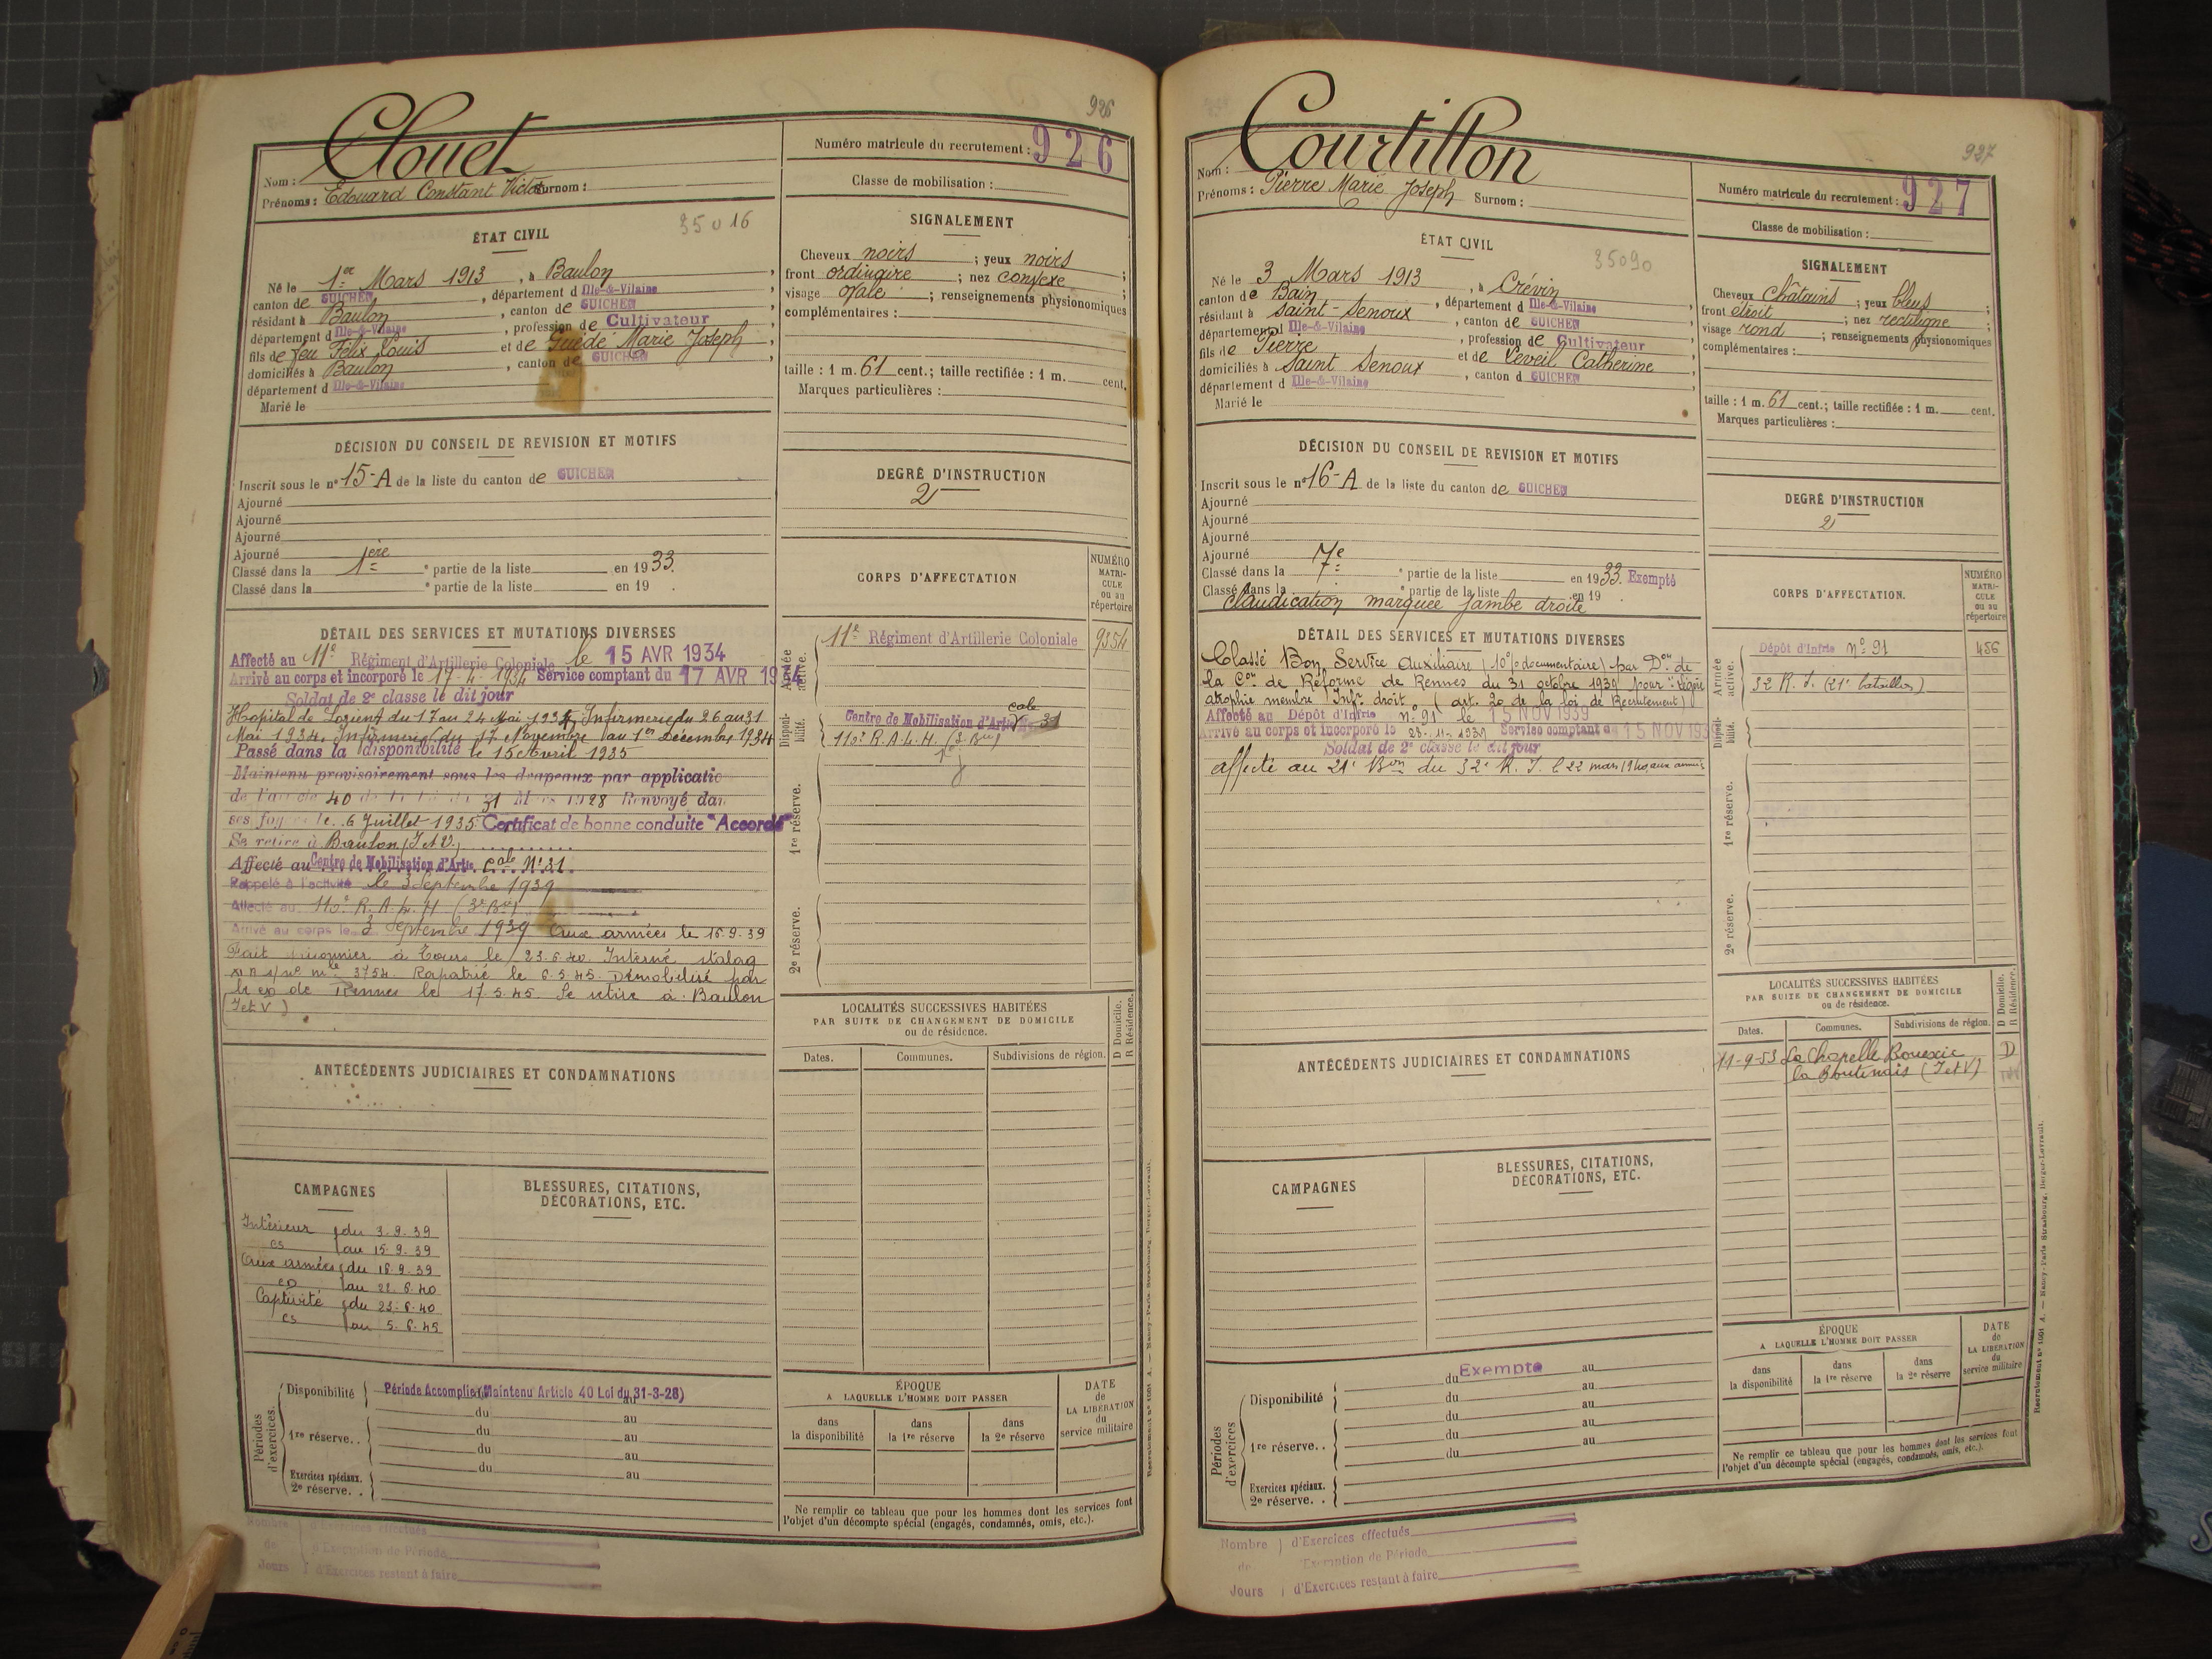 926
Clouet
Nom :
Prénoms : Edouard Constant Victor Surnom :
Numéro matricule du recrutement : 926
Classe de mobilisation :
35016
ÉTAT CIVIL
Né le 1er Mars 1913, à Baulon,
canton de GUICHEN, département d Ille-&-Vilaine
résidant à Baulon, canton de GUICHEN,
département d Ille-&-Vilaine, profession de Cultivateur
fils de feu Félix Louis et de Guédé Marie Joseph,
domiciliés à Baulon, canton de GUICHEN
département d Ille-&-Vilaine
Marié le
SIGNALEMENT
Cheveux noirs ; yeux noirs ;
front ordinaire ; nez convexe ;
visage ovale ; renseignements physionomiques
complémentaires :
taille : 1 m. 61 cent.; taille rectifiée : 1 m. cent.
Marques particulières :
DÉCISION DU CONSEIL DE REVISION ET MOTIFS
Inscrit sous le n° 15-A de la liste du canton de GUICHEN
Ajourné
Ajourné
Ajourné
Ajourné
Classé dans la 1ère partie de la liste en 1933.
Classé dans la e partie de la liste en 19 .
DEGRÉ D'INSTRUCTION
2
CORPS D'AFFECTATION
NUMÉRO MATRI-
CULE
ou au
répertoire
Armée active.
11e Régiment d'Artillerie Coloniale 9354
Disponi-
bilité.
Centre de Mobilisation d'Artie cole 31
110e R.A.L.H. (3e Bie)
1re réserve.
2e réserve.
DÉTAIL DES SERVICES ET MUTATIONS DIVERSES
Affecté au 11e Régiment d'Artillerie Coloniale le 15 AVR 1934
Arrivé au corps et incorporé le 17-4-1934 Service comptant du 17 AVR 1934
Soldat de 2e classe le dit jour
Hopital de Lorient du 17 au 24 Mai 1934, Infirmerie du 26 au 31
Mai 1934. Infirmerie du 17 Novembre au 1er Décembre 1934
Passé dans la disponibilité le 15 Avril 1935
Maintenu provisoirement sous les drapeaux par applicatio
de l'article 40 de la loi du 31 Mars 1928 Renvoyé dan
ses foyers le 6 Juillet 1935 Certificat de bonne conduite "Accordé"
Se retire à Baulon (I et V)
Affecté au Centre de Mobilisation d'Artie cole N° 31.
Rappelé à l'activité le 3 Septembre 1939
Affecté au 110e R.A.L.H (3e Bie)
Arrivé au corps le 3 Septembre 1939 Aux armées le 16.9.39
Fait prisonnier à Tours le 23.6.40. Interné stalag
s/ n° mle 3754. Rapatrié le 6.5.45. Démobilisé par
le de Rennes le 17.5.45. Se retire à Baulon
(I et V)
LOCALITÉS SUCCESSIVES HABITÉES
PAR SUITE DE CHANGEMENT DE DOMICILE
ou de résidence.
D Domicile.
R Résidence.
Dates. Communes. Subdivisions de région.
ANTÉCÉDENTS JUDICIAIRES ET CONDAMNATIONS
CAMPAGNES
Intérieur du 3.9.39
cs au 15.9.39
Aux armées du 16.9.39
cD au 22.6.40
Captivité du 23.6.40
cs au 5.5.45
BLESSURES, CITATIONS,
DÉCORATIONS, ETC.
Périodes d'exercices.
Disponibilité Période Accomplie (Maintenu Article 40 Loi du 31-3-28)
du au
1re réserve. . du au
du au
du au
Exercices spéciaux.
2e réserve. .
ÉPOQUE
A LAQUELLE L'HOMME DOIT PASSER
dans
la disponibilité
dans
la 1re réserve
dans
la 2e réserve
DATE
de
LA LIBÉRATION
du
service militaire
Ne remplir ce tableau que pour les hommes dont les services font
l'objet d'un décompte spécial (engagés, condamnés, omis, etc.).
Nombre d'Exercices effectués
de d'Exemption de Période
Jours d'Exercices restant à faire
927
Courtillon
Nom :
Prénoms : Pierre Marie Joseph Surnom :
Numéro matricule du recrutement : 927
Classe de mobilisation :
35090
ÉTAT CIVIL
Né le 3 Mars 1913, à Crévin,
canton de Bain, département d Ille-&-Vilaine
résidant à Saint-Senoux, canton de GUICHEN
département d Ille-&-Vilaine, profession de Cultivateur
fils de Pierre et de Leveil Catherine
domiciliés à Saint Senoux, canton d GUICHEN
département d Ille-&-Vilaine
Marié le
SIGNALEMENT
Cheveux châtains ; yeux bleus ;
front étroit ; nez rectiligne ;
visage rond ; renseignements physionomiques
complémentaires :
taille : 1 m. 61 cent.; taille rectifiée : 1 m. cent.
Marques particulières :
DÉCISION DU CONSEIL DE REVISION ET MOTIFS
Inscrit sous le n° 16-A de la liste du canton de GUICHEN
Ajourné
Ajourné
Ajourné
Ajourné
Classé dans la 7e partie de la liste en 1933. Exempté
Classé dans la e partie de la liste en 19
claudication marquée jambe droite
DEGRÉ D'INSTRUCTION
2
CORPS D'AFFECTATION.
NUMÉRO
MATRI-
CULE
ou au
répertoire
Armée active.
Dépôt d'Infrie N° 91 456
32 R.I. (21e bataillon)
Disponi-
bilité.
1re réserve.
2e réserve.
DÉTAIL DES SERVICES ET MUTATIONS DIVERSES
Classé Bon Service Auxiliaire (10% documentaire) par Don de
la Con de Réforme de Rennes du 31 octobre 1939 pour "Légère
atrophie membre Infr droit (art. 20 de la loi de Recrutement)
Affecté au Dépôt d'Infrie N° 91 le 15 NOV 1939
Arrivé au corps et incorporé le 23-11-1939 Service comptant du 15 NOV 1939
Soldat de 2e classe le dit jour
affecté au 21e Bon du 32e R.I. le 22 mars 1940 aux armées
LOCALITÉS SUCCESSIVES HABITÉES
PAR SUITE DE CHANGEMENT DE DOMICILE
ou de résidence.
D Domicile.
R Résidence.
Dates. Communes. Subdivisions de région.
11-9-53 La Chapelle Bouexic D
(I et V)
ANTÉCÉDENTS JUDICIAIRES ET CONDAMNATIONS
CAMPAGNES
BLESSURES, CITATIONS,
DÉCORATIONS, ETC.
Périodes d'exercices
Disponibilité du Exempté au
du au
du au
1re réserve. . du au
du au
Exercices spéciaux.
2e réserve. .
ÉPOQUE
A LAQUELLE L'HOMME DOIT PASSER
dans
la disponibilité
dans
la 1re réserve
dans
la 2e réserve
DATE
de
LA LIBÉRATION
du
service militaire
Ne remplir ce tableau que pour les hommes dont les services font
l'objet d'un décompte spécial (engagés, condamnés, omis, etc.).
Nombre d'Exercices effectués
de d'Exemption de Période
Jours d'Exercices restant à faire